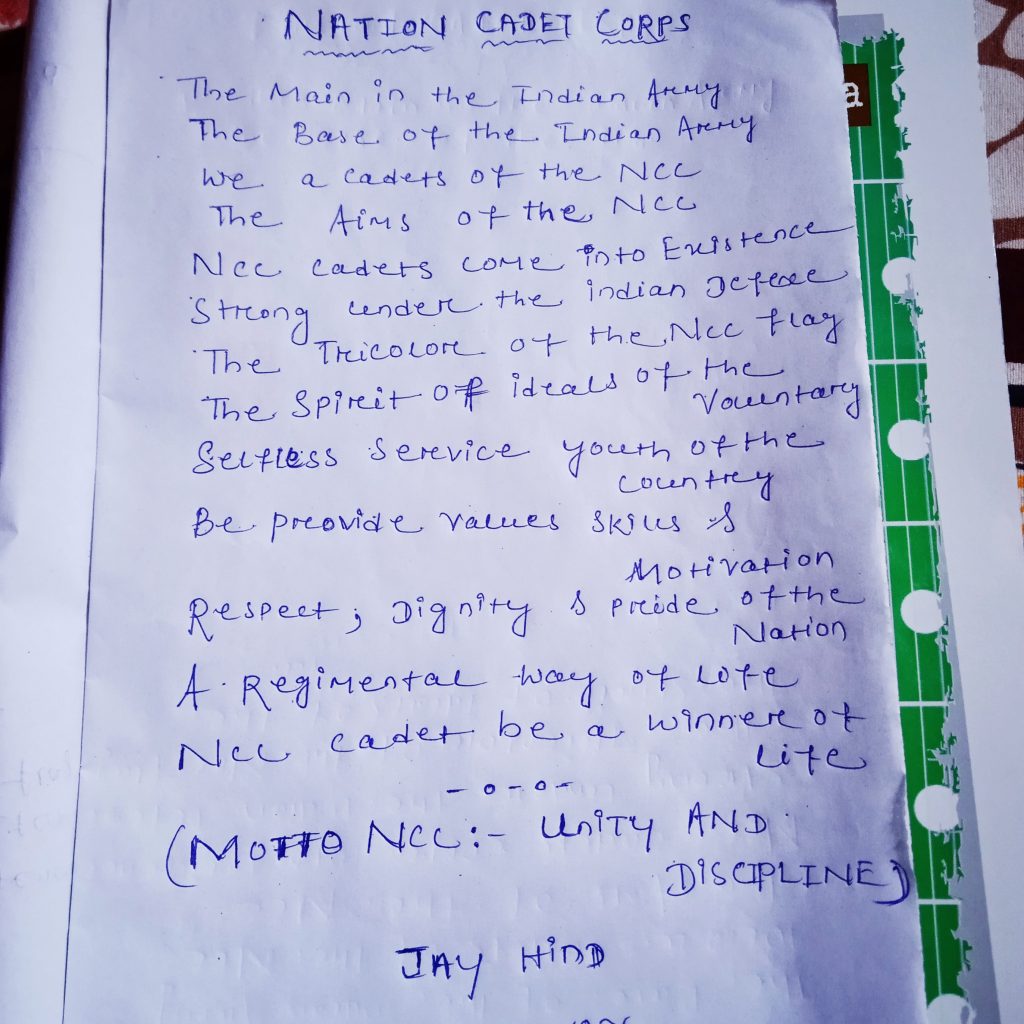 NATION CADET CORPS
The Main in the Indian Army
The Base of the Indian Army
We a cadets of the NCC
The Aims of the NCC
NCC cadets come into Existence
Strong under the indian Defece
The Tricolore of the NCC flag
The Spirit of ideals of the
Vouentary
Selfless Service youth of the
Country
Be provide values skills &
Motivation
Respect; Dignity & pride of the
Nation
A Regimental way of life
NCC cadet be a winner of
life
-o-o-
(MOTTO NCC:- UNITY AND
DISCIPLINE)
JAY HIND
a